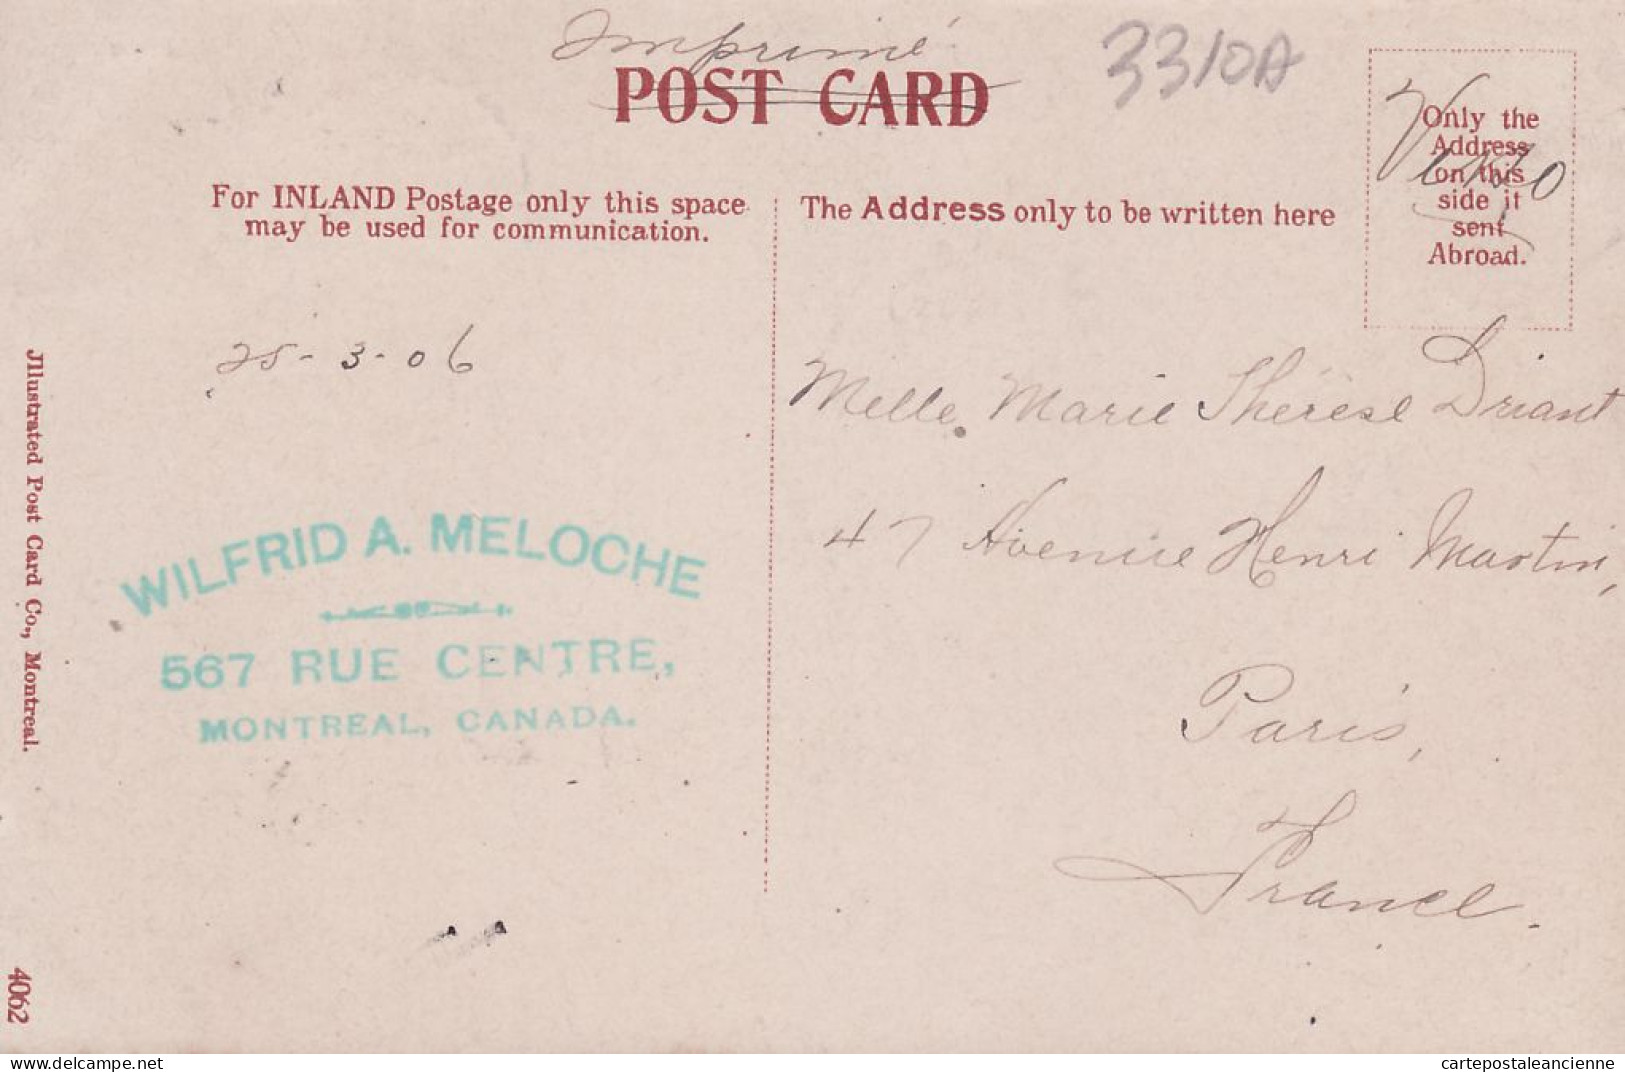 Imprimé
POST CARD
3310A
For INLAND Postage only this space
may be used for communication.
The Address only to be written here
Only the
Address
on this
side it
sent
Abroad.
Verso
25-3-06
Melle Marie Thérèse Driant
47 Avenue Henri Martin,
Paris,
France.
WILFRID A. MELOCHE
567 RUE CENTRE,
MONTREAL, CANADA.
Jllustrated Post Card Co., Montreal.
4062
https://www.delcampe.net
cartepostaleancienne